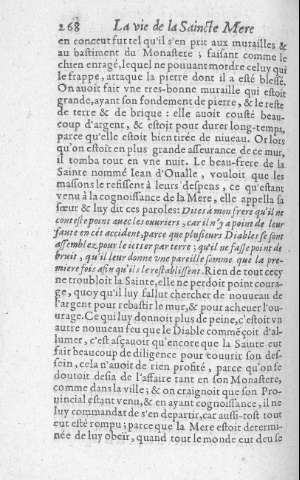 268 La vie de la Saincte Mere
en conceut fut tel qu'il s'en prit aux murailles &
au bastiment du Monastere ; faisant comme le
chien enragé, lequel ne pouuant mordre celuy qui
le frappe, attaque la pierre dont il a esté blessé.
On auoit fait vne tres-bonne muraille qui estoit
grande, ayant son fondement de pierre, & le reste
de terre & de brique : elle auoit cousté beau-
coup d'argent, & estoit pour durer long-temps,
parce qu'elle estoit bien tirée de niueau. Or lors
qu'on estoit en plus grande asseurance de ce mur,
il tomba tout en vne nuit. Le beau-frere de la
Sainte nommé Iean d'Oualle, vouloit que les
massons le refissent à leurs despens, ce qu'estant
venu à la cognoissance de la Mere, elle appella sa
sœur & luy dit ces paroles: Dites à mon frere qu'il ne
conteste point auec les ouuriers, car il n'y a point de leur
faute en cet accident, parce que plusieurs Diables se sont
assemblez pour le ietter par terre ; qu'il ne fasse point de
bruit, qu'il leur donne vne pareille somme que la pre-
miere fois afin qu'ils le restablissent. Rien de tout cecy
ne troubloit la Sainte, elle ne perdoit point coura-
ge, quoy qu'il luy fallut chercher de nouueau de
l'argent pour rebastir le mur, & pour acheuer l'ou-
urage. Ce qui luy donnoit plus de peine, c'estoit vn
autre nouueau feu que le Diable commēçoit d'al-
lumer, c'est asçauoir qu'encore que la Sainte eut
fait beaucoup de diligence pour couurir son des-
sein, cela n'auoit de rien profité, parce qu'on se
doutoit desia de l'affaire tant en son Monastere,
comme dans la ville ; & on craignoit que son Pro-
uincial estant venu, & en ayant cognoissance, il ne
luy commandat de s'en departir, car aussi-tost tout
eut esté rompu ; parce que la Mere estoit determi-
née de luy obeïr, quand tout le monde eut deu se